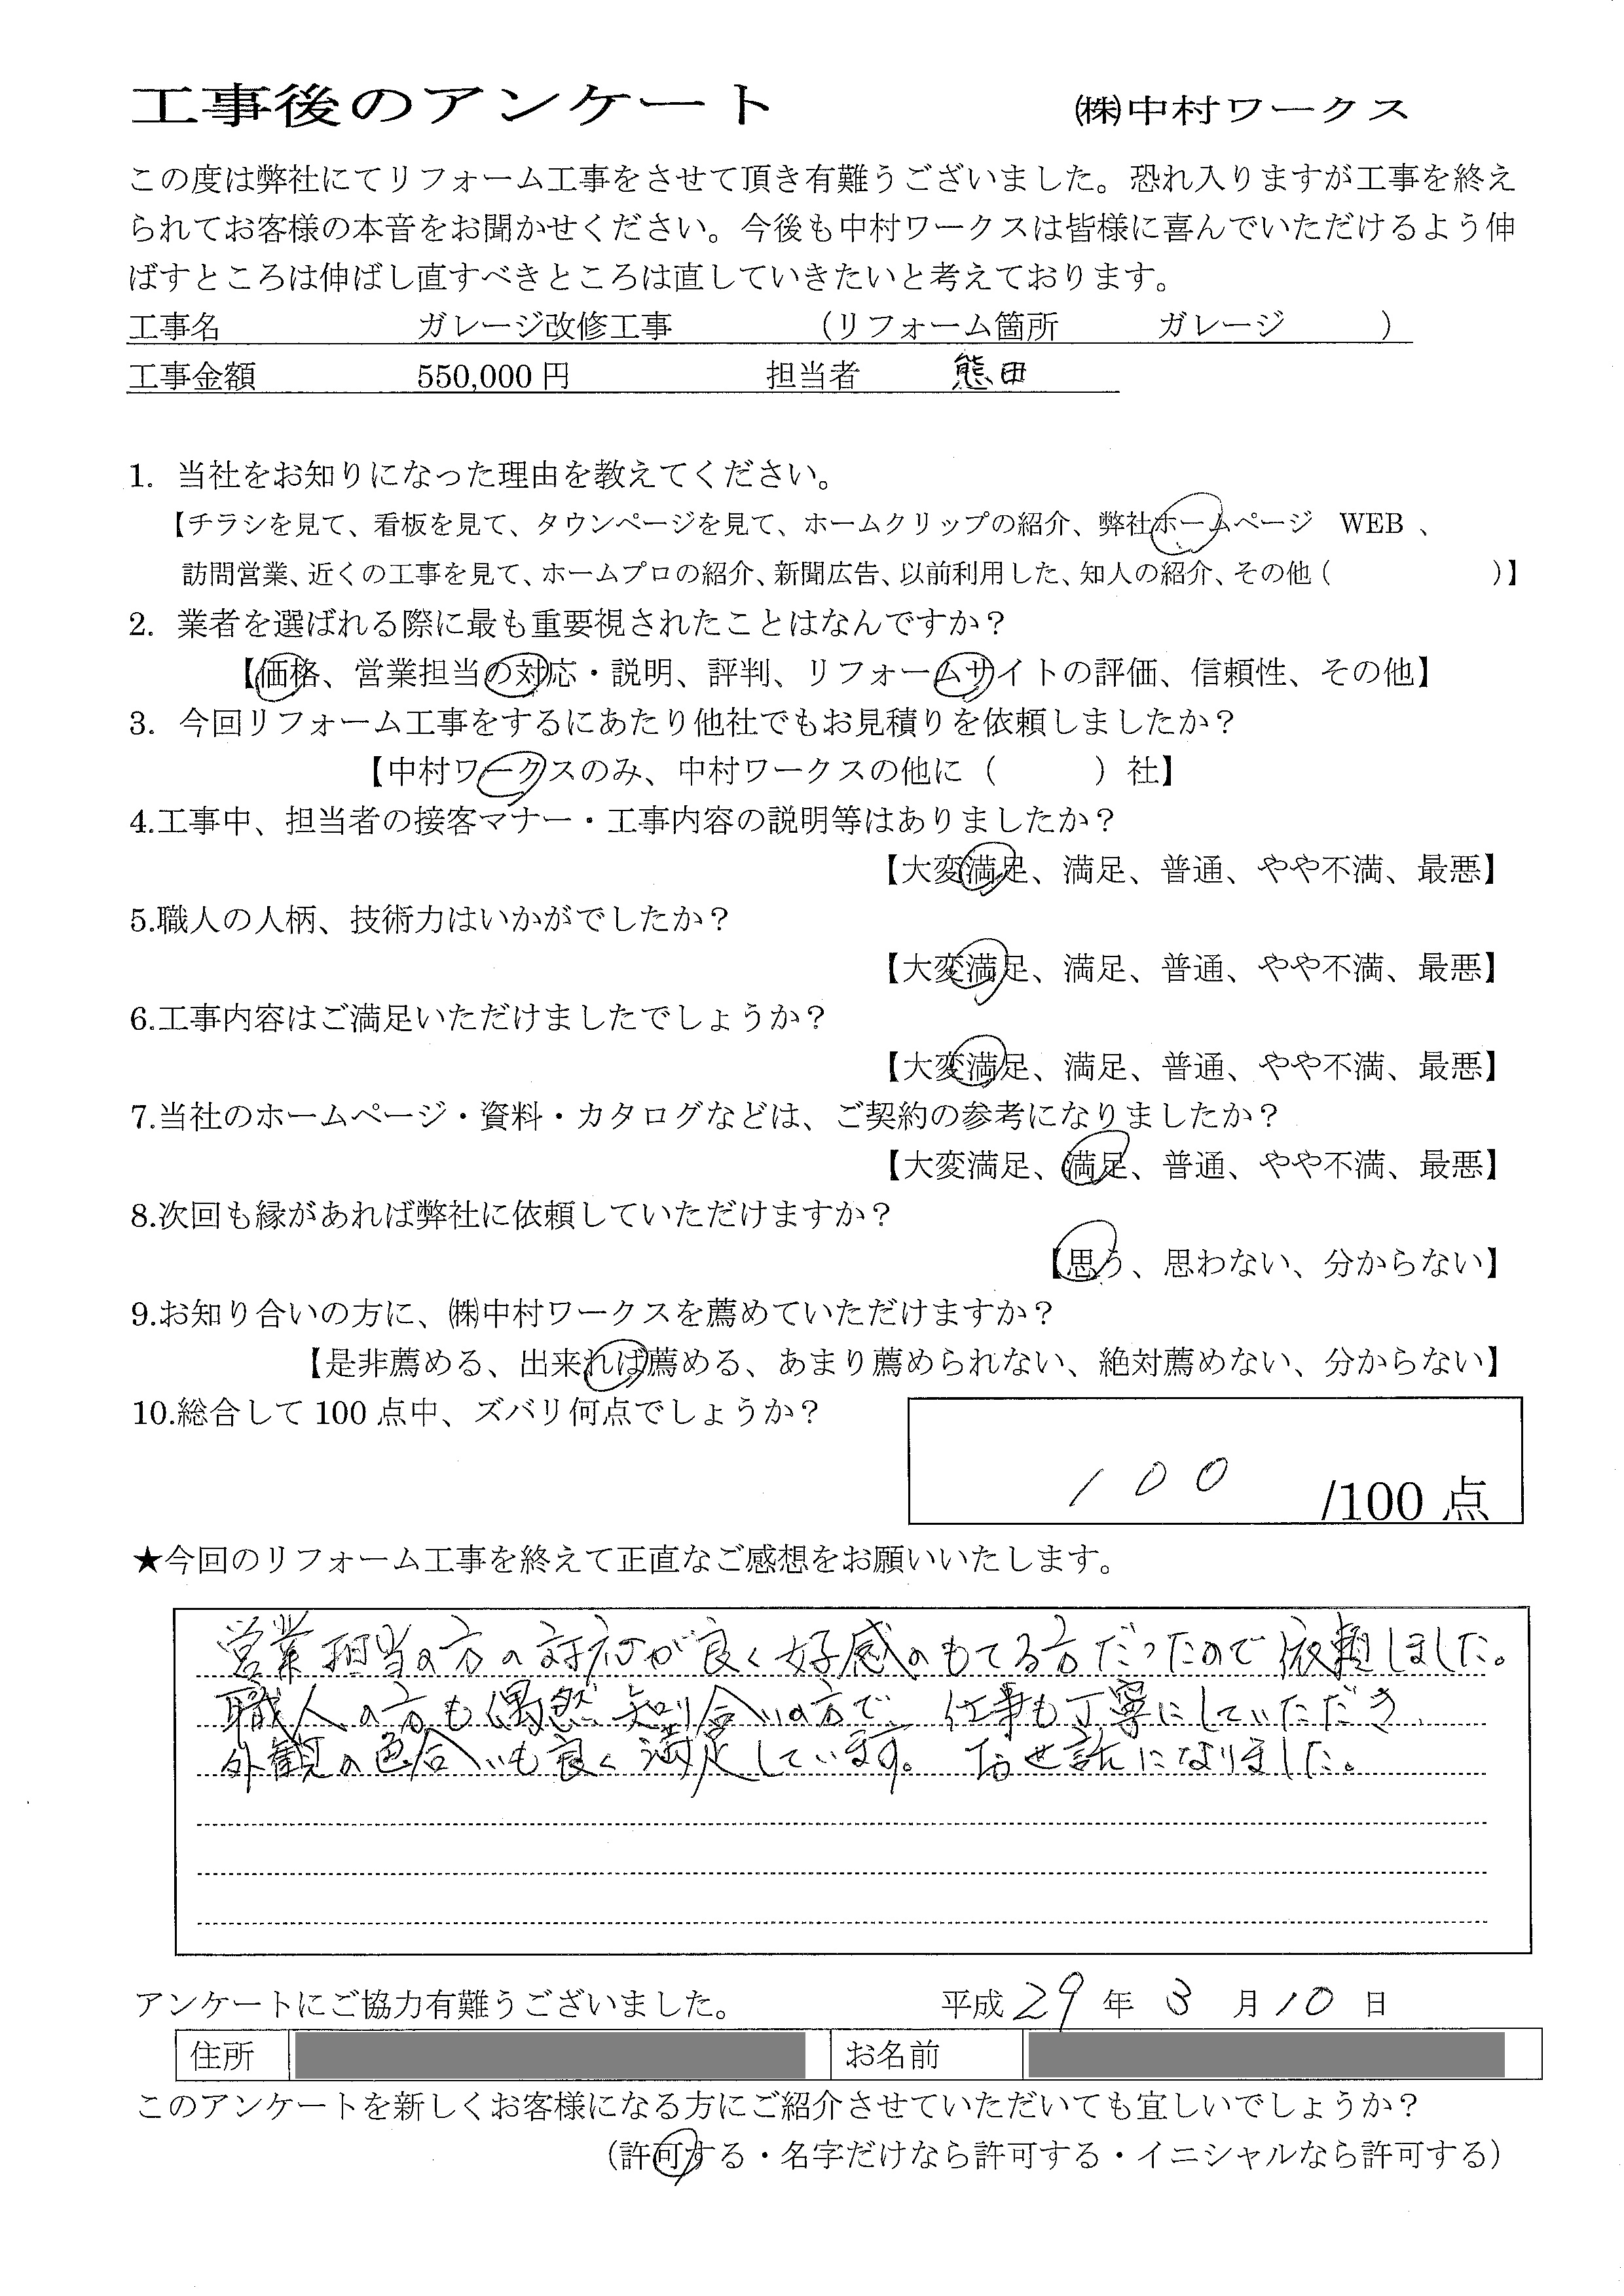 工事後のアンケート ㈱中村ワークス
この度は弊社にてリフォーム工事をさせて頂き有難うございました。恐れ入りますが工事を終え
られてお客様の本音をお聞かせください。今後も中村ワークスは皆様に喜んでいただけるよう伸
ばすところは伸ばし直すべきところは直していきたいと考えております。
工事名 ガレージ改修工事 （リフォーム箇所 ガレージ ）
工事金額 550,000 円 担当者 熊田
1. 当社をお知りになった理由を教えてください。
【チラシを見て、看板を見て、タウンページを見て、ホームクリップの紹介、弊社ホームページ WEB 、
訪問営業、近くの工事を見て、ホームプロの紹介、新聞広告、以前利用した、知人の紹介、その他（ ）】
2. 業者を選ばれる際に最も重要視されたことはなんですか？
【価格、営業担当の対応・説明、評判、リフォームサイトの評価、信頼性、その他】
3. 今回リフォーム工事をするにあたり他社でもお見積りを依頼しましたか？
【中村ワークスのみ、中村ワークスの他に（ ）社】
4.工事中、担当者の接客マナー・工事内容の説明等はありましたか？
【大変満足、満足、普通、やや不満、最悪】
5.職人の人柄、技術力はいかがでしたか？
【大変満足、満足、普通、やや不満、最悪】
6.工事内容はご満足いただけましたでしょうか？
【大変満足、満足、普通、やや不満、最悪】
7.当社のホームページ・資料・カタログなどは、ご契約の参考になりましたか？
【大変満足、満足、普通、やや不満、最悪】
8.次回も縁があれば弊社に依頼していただけますか？
【思う、思わない、分からない】
9.お知り合いの方に、㈱中村ワークスを薦めていただけますか？
【是非薦める、出来れば薦める、あまり薦められない、絶対薦めない、分からない】
10.総合して 100 点中、ズバリ何点でしょうか？
100 /100 点
★今回のリフォーム工事を終えて正直なご感想をお願いいたします。
営業担当の方の対応が良く好感のもてる方だったので依頼しました。
職人の方も偶然知り合いの方で、仕事も丁寧にしていただき、
外観の色合いも良く満足しています。お世話になりました。
アンケートにご協力有難うございました。 平成 29 年 3 月 10 日
住所 お名前
このアンケートを新しくお客様になる方にご紹介させていただいても宜しいでしょうか？
（許可する・名字だけなら許可する・イニシャルなら許可する）